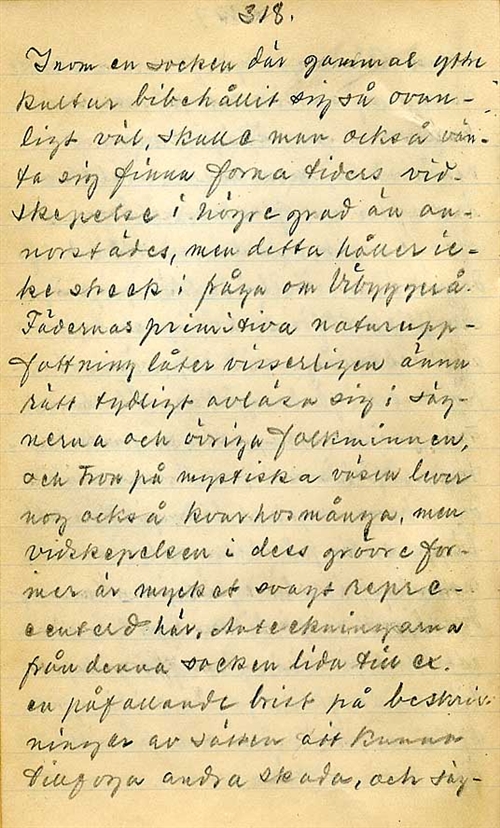 318.
Inom en socken där gammal yttre
kultur bibehållit sig så ovan-
ligt väl, skulle man också vän-
ta sig finna forna tiders vid-
skepelse i högre grad än an-
norstädes, men detta håller ic-
ke streck i fråga om Örbyggerå.
Fädernas primitiva naturupp-
fattning låter visserligen ännu
rätt tydligt avläsa sig i säg-
nerna och övriga folkminnen,
och tron på mystiska väsen lever
nog också kvar hos många, men
vidskepelsen i dess grövre for-
mer är mycket svagt repre-
centerd här. Anteckningarna
från denna socken lida till ex.
en påfallande brist på beskriv-
ningar av sätten att kunna
tillfoga andra skada, och säg-